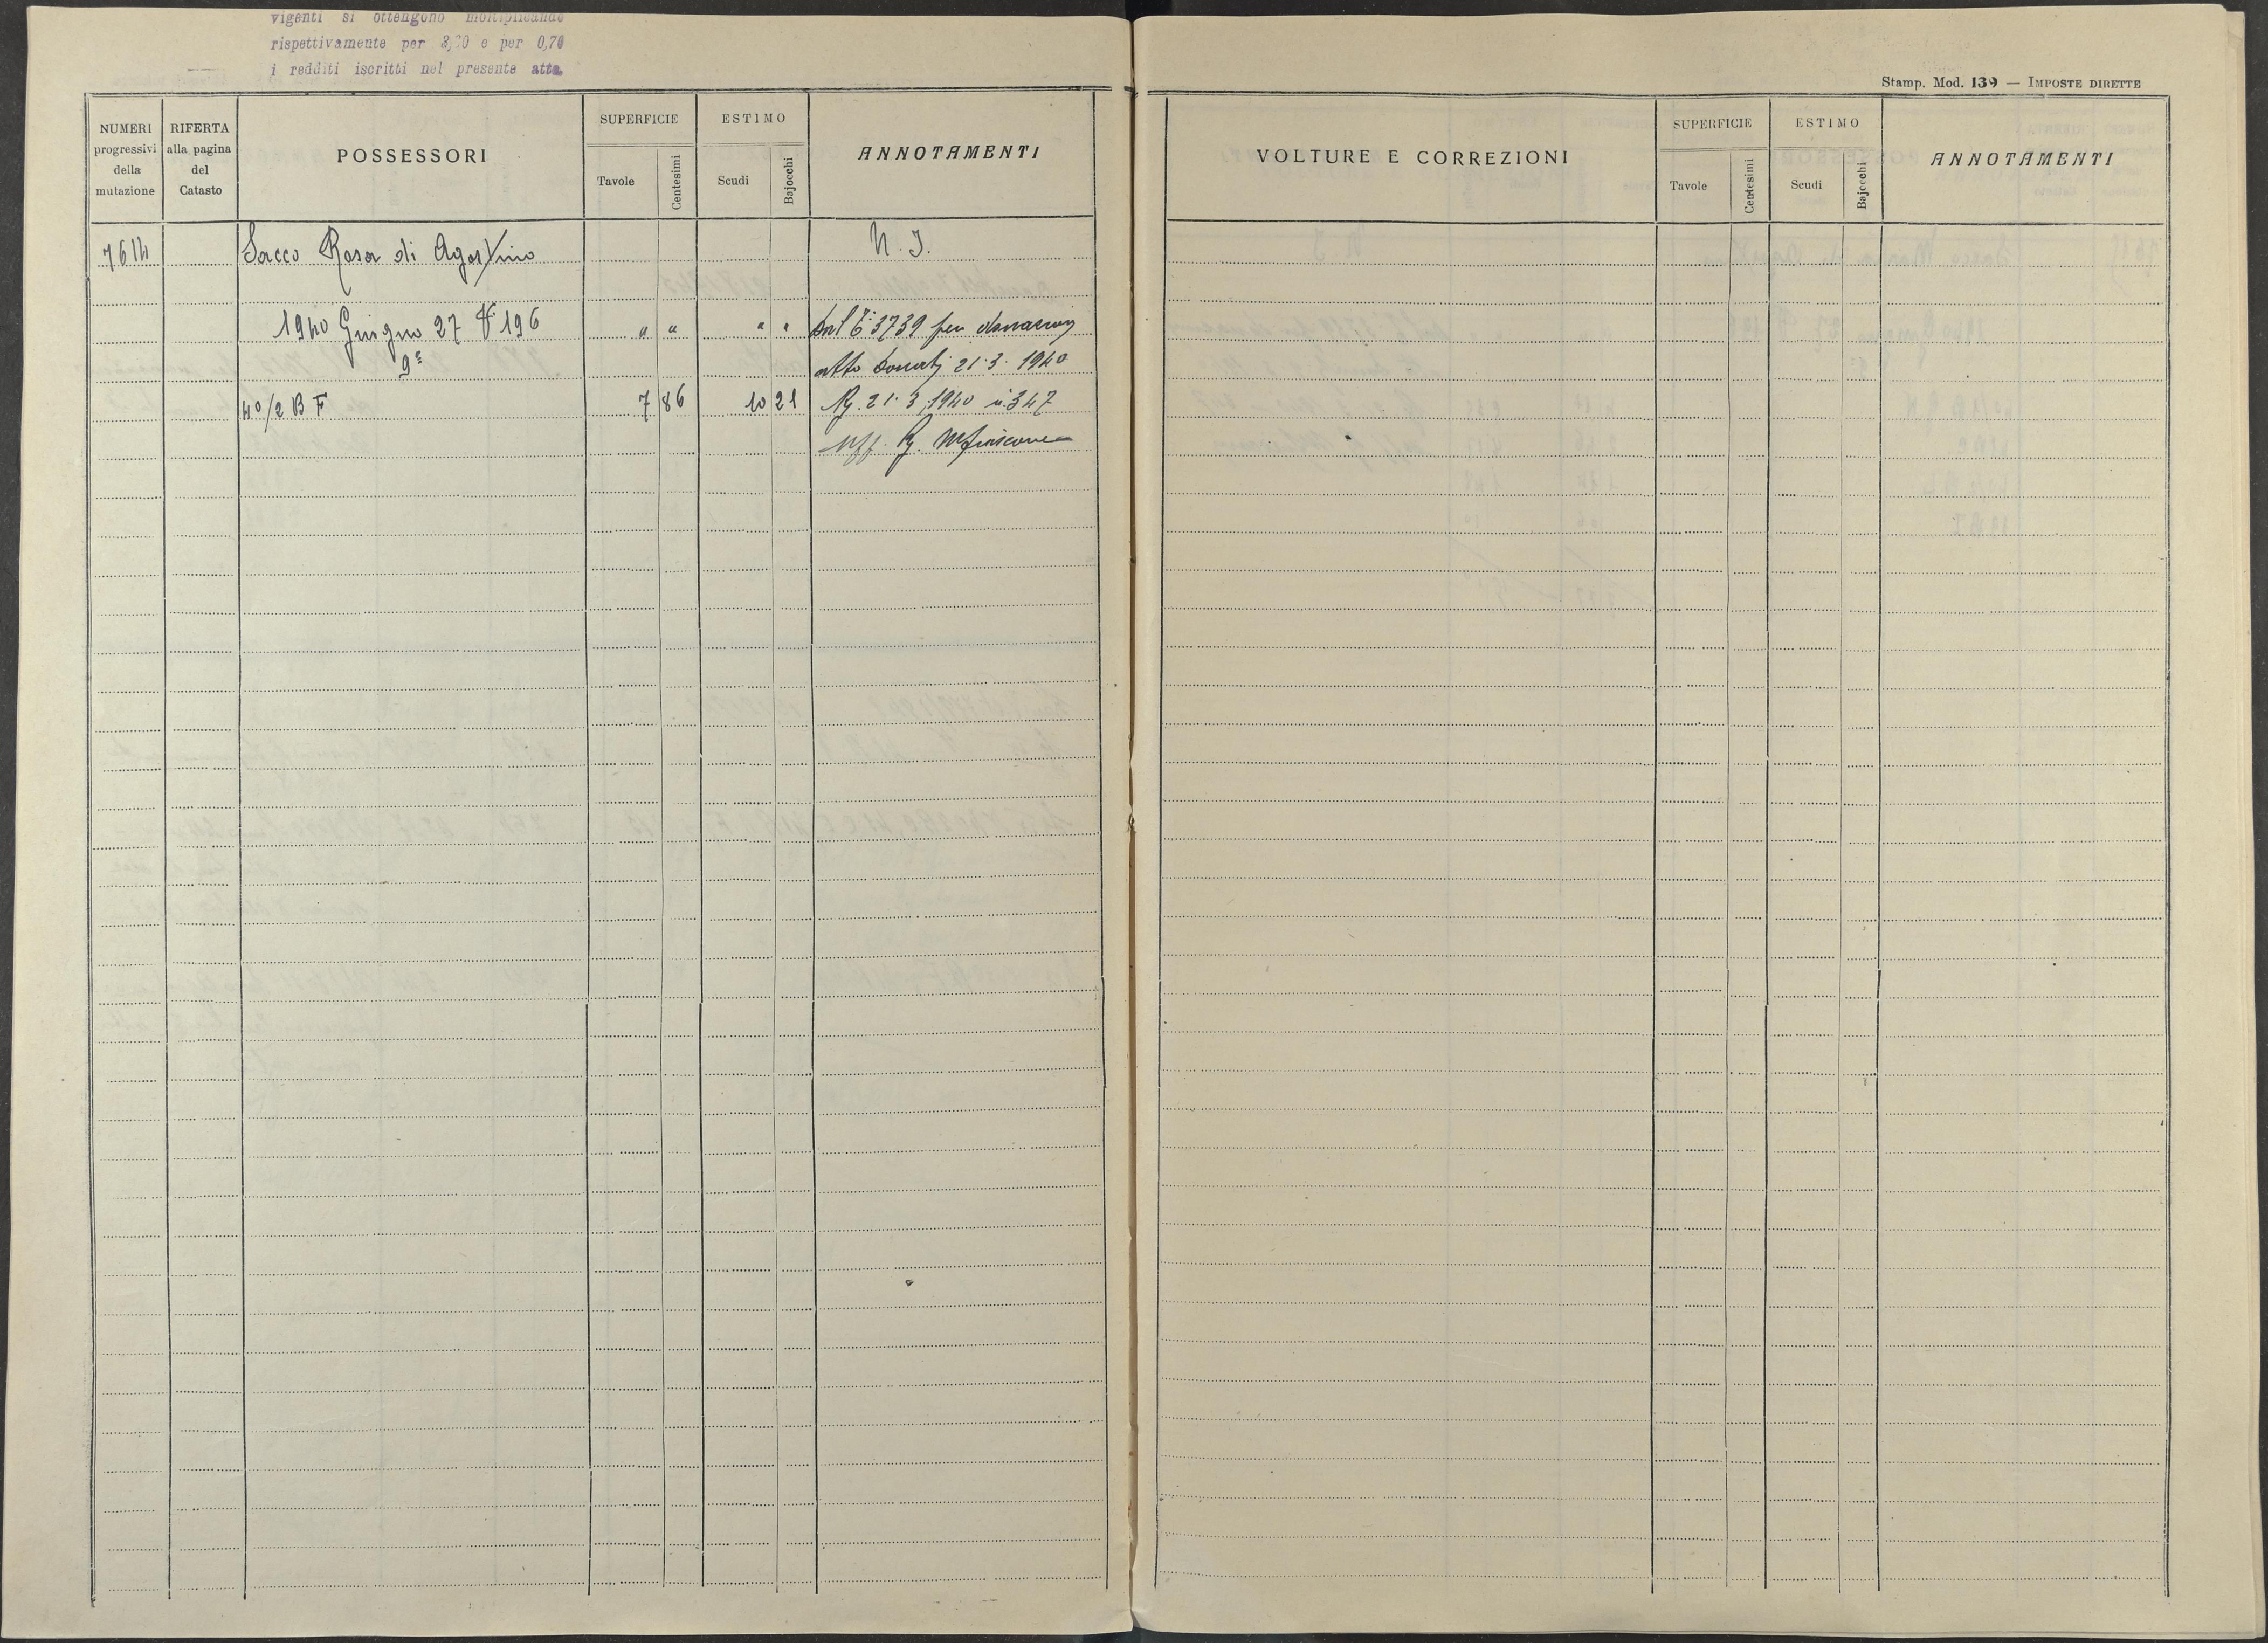 vigenti si ottengono moltiplicando
rispettivamente per 3,20 e per 0,70
i redditi iscritti nel presente atto.
NUMERI progressivi della mutazione
RIFERTA alla pagina del Catasto
POSSESSORI
SUPERFICIE
Tavole
Centesimi
ESTIMO
Scudi
Bajocchi
ANNOTAMENTI
7614 Sacco Rosa di Agostino N. I.
1940 Giugno 27 F 196 " " " " Dal 3739 per donazione
9ª atto Donati 21·3·1940
40/2 B F 7 86 10 21 Rg. 21·3·1940 n. 347
Uff. Rg.
Stamp. Mod. 139 — IMPOSTE DIRETTE
VOLTURE E CORREZIONI
SUPERFICIE
Tavole
Centesimi
ESTIMO
Scudi
Bajocchi
ANNOTAMENTI